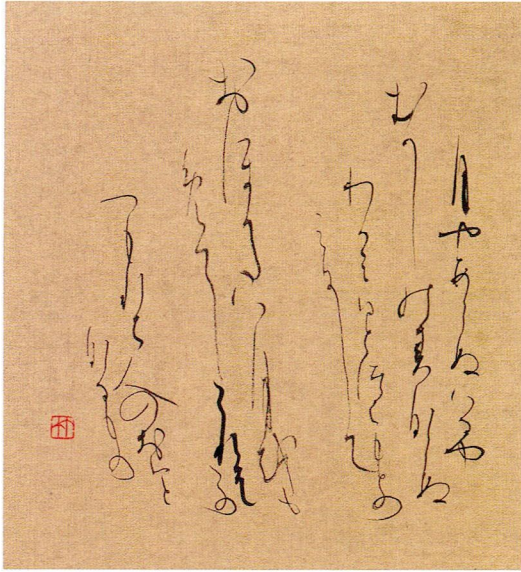 月やあらぬはるや
むかしの春ならぬ
わかみひとつはもとの
みにして
おほかたは月をも
めてしこれそこの
つもれは人のおいと
なるもの